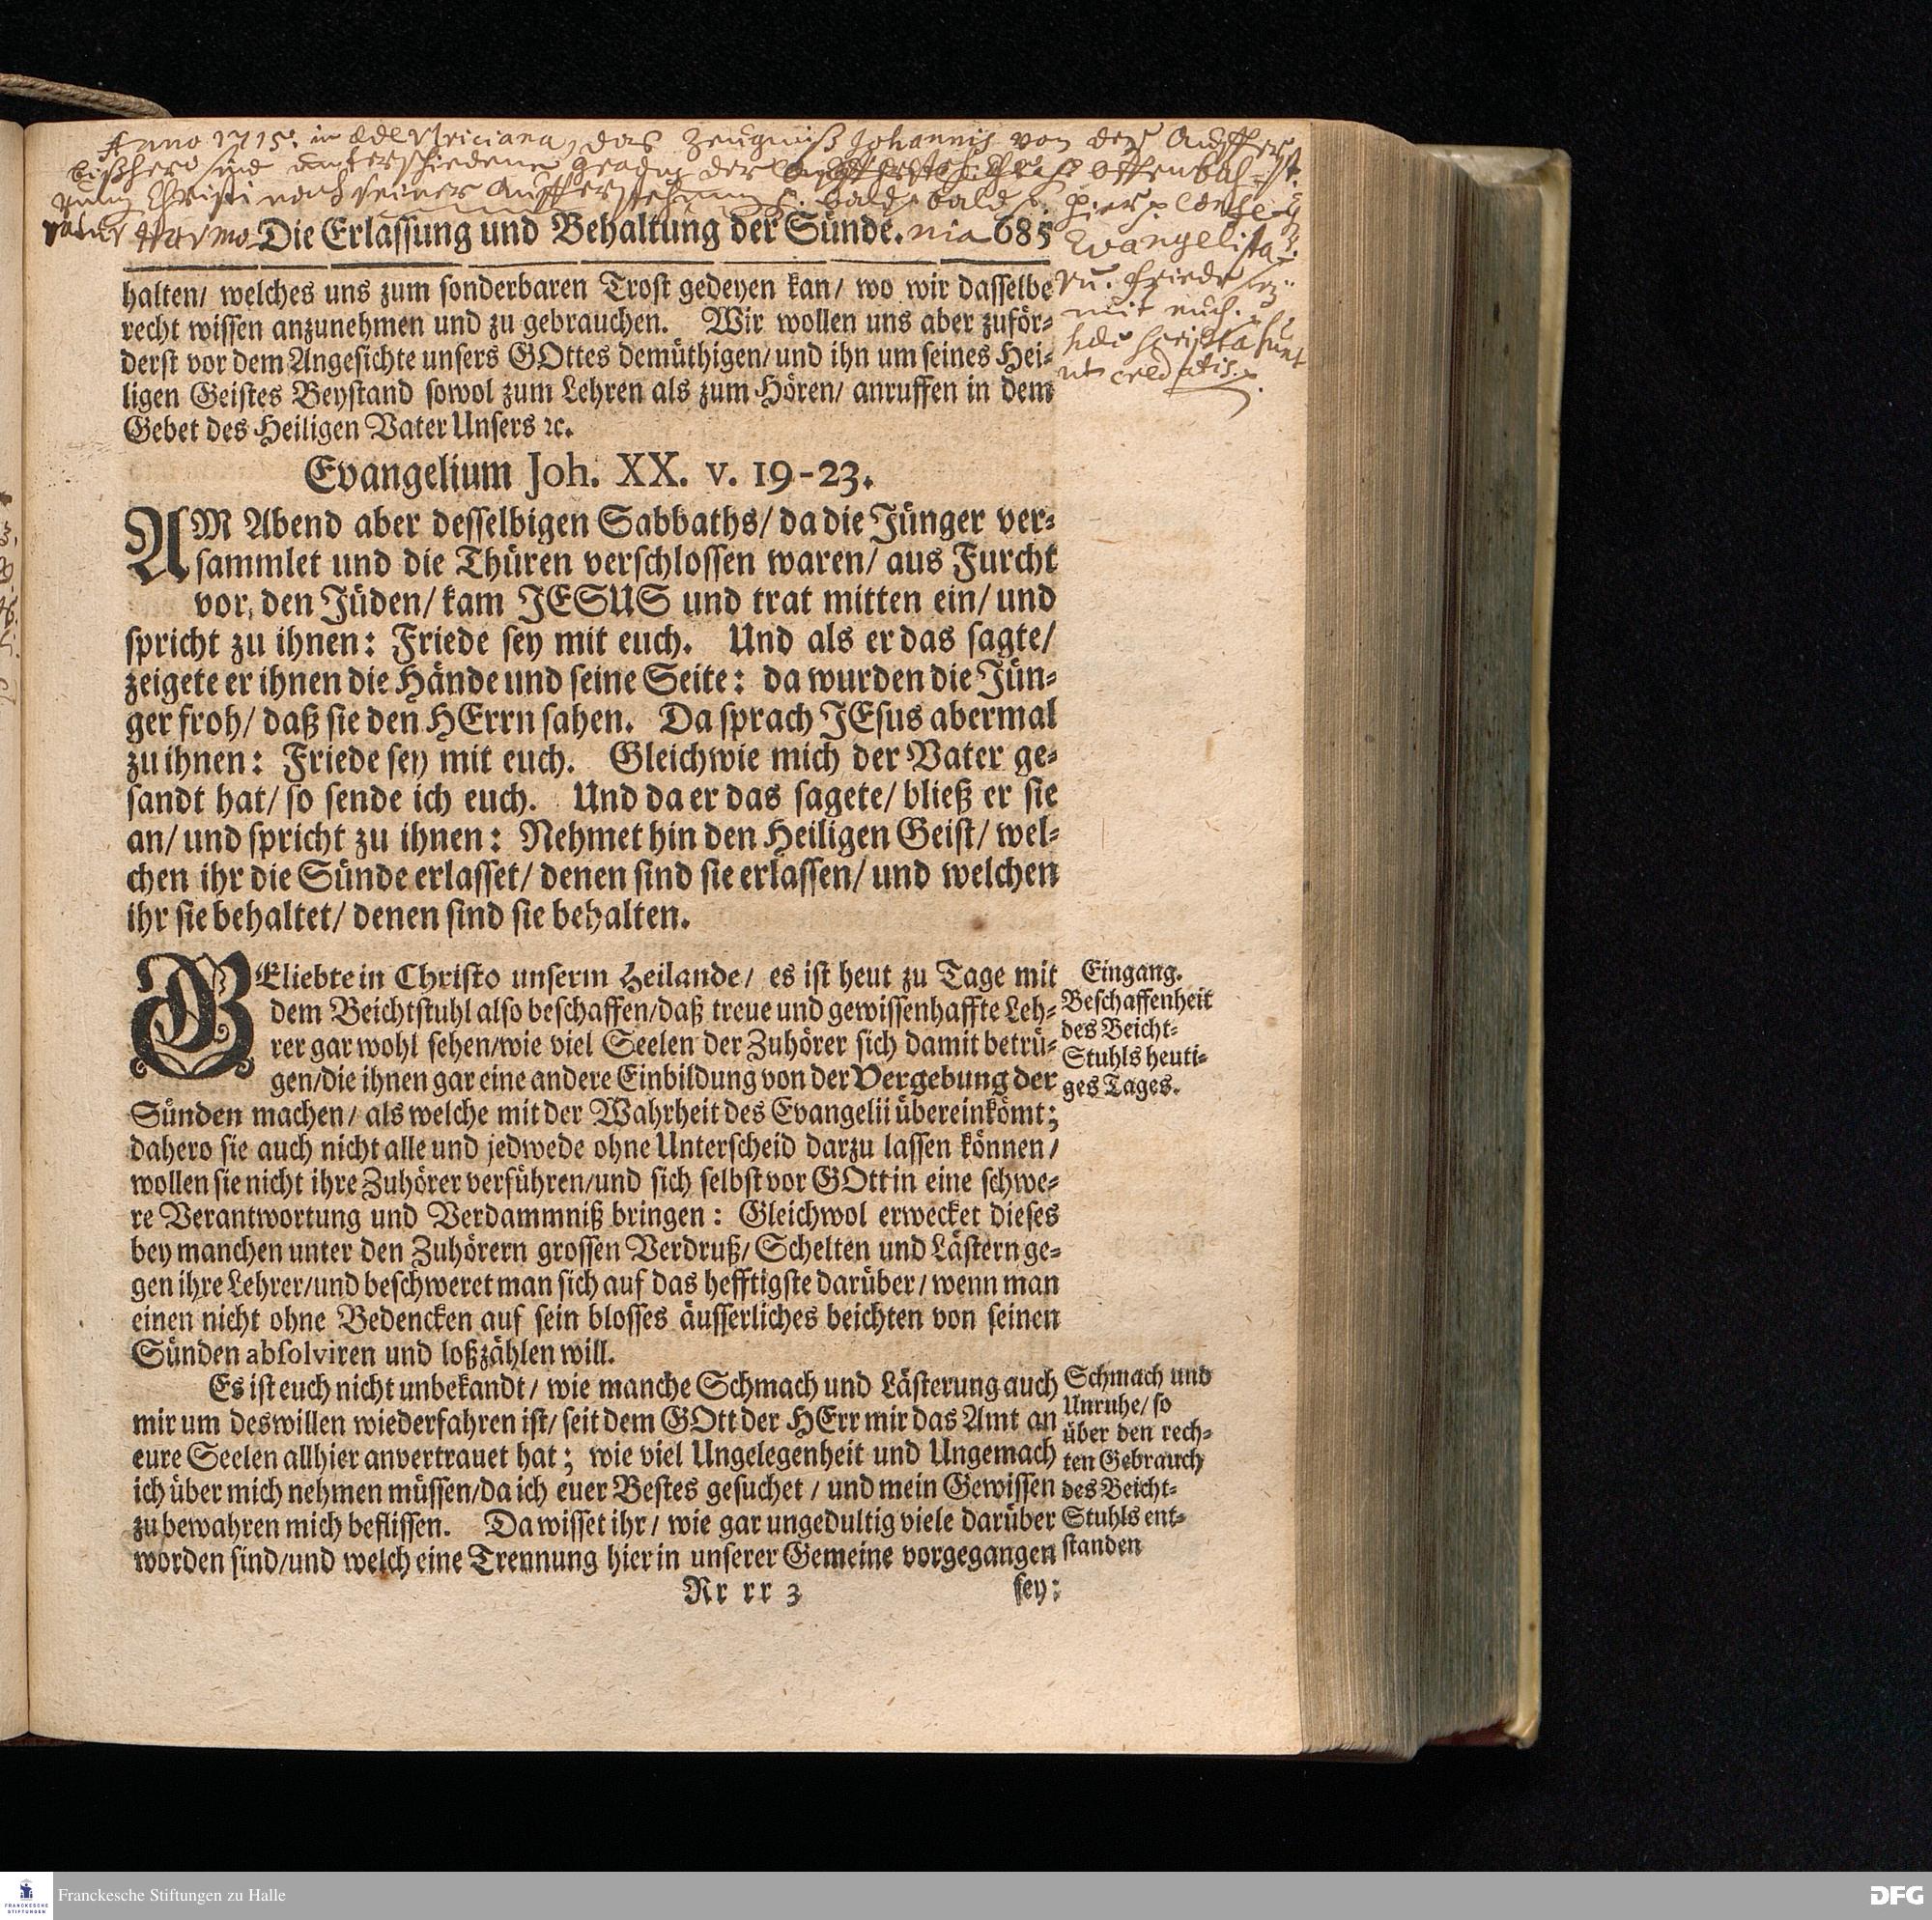 Anno 1715. in æde Ulriciana, das Zeugniß Johannis von der
bißhero sind unterschiedene der Offenbah-
rung Christi nach seiner Aufferstehung bald bald
Harmo-
nia
Evangelista-
rũ. Friede sey
mit euch.
hæc scripta sunt
ut credatis.
Die Erlassung und Behaltung der Sünde. 685
halten/ welches uns zum sonderbaren Trost gedeyen kan/ wo wir dasselbe
recht wissen anzunehmen und zu gebrauchen. Wir wollen uns aber zuför-
derst vor dem Angesichte unsers GOttes demüthigen/ und ihn um seines Hei-
ligen Geistes Beystand sowol zum Lehren als zum Hören/ anruffen in dem
Gebet des Heiligen Vater Unsers ꝛc.
Evangelium Joh. XX. v. 19-23.
AM Abend aber desselbigen Sabbaths/ da die Jünger ver-
sammlet und die Thüren verschlossen waren/ aus Furcht
vor den Jüden/ kam JESUS und trat mitten ein/ und
spricht zu ihnen: Friede sey mit euch. Und als er das sagte/
zeigete er ihnen die Hände und seine Seite: da wurden die Jün-
ger froh/ daß sie den HErrn sahen. Da sprach JEsus abermal
zu ihnen: Friede sey mit euch. Gleichwie mich der Vater ge-
sandt hat/ so sende ich euch. Und da er das sagete/ bließ er sie
an/ und spricht zu ihnen: Nehmet hin den Heiligen Geist/ wel-
chen ihr die Sünde erlasset/ denen sind sie erlassen/ und welchen
ihr sie behaltet/ denen sind sie behalten.
GEliebte in Christo unserm Heilande/ es ist heut zu Tage mit
dem Beichtstuhl also beschaffen/ daß treue und gewissenhaffte Leh-
rer gar wohl sehen/ wie viel Seelen der Zuhörer sich damit betrü-
gen/ die ihnen gar eine andere Einbildung von der Vergebung der
Sünden machen/ als welche mit der Wahrheit des Evangelii übereinkömt;
dahero sie auch nicht alle und jedwede ohne Unterscheid darzu lassen können/
wollen sie nicht ihre Zuhörer verführen/ und sich selbst vor GOtt in eine schwe-
re Verantwortung und Verdammniß bringen: Gleichwol erwecket dieses
bey manchen unter den Zuhörern grossen Verdruß/ Schelten und Lästern ge-
gen ihre Lehrer/ und beschweret man sich auf das hefftigste darüber/ wenn man
einen nicht ohne Bedencken auf sein blosses äusserliches beichten von seinen
Sünden absolviren und loßzählen will.
Es ist euch nicht unbekandt/ wie manche Schmach und Lästerung auch
mir um deswillen wiederfahren ist/ seit dem GOtt der HErr mir das Amt an
eure Seelen allhier anvertrauet hat; wie viel Ungelegenheit und Ungemach
ich über mich nehmen müssen/ da ich euer Bestes gesuchet/ und mein Gewissen
zu bewahren mich beflissen. Da wisset ihr/ wie gar ungedultig viele darüber
worden sind/ und welch eine Trennung hier in unserer Gemeine vorgegangen
Rr rr 3 sey:
Eingang.
Beschaffenheit
des Beicht-
Stuhls heuti-
ges Tages.
Schmach und
Unruhe/ so
über den rech-
ten Gebrauch
des Beicht-
Stuhls ent-
standen
FRANCKESCHE
STIFTUNGEN
Franckesche Stiftungen zu Halle
DFG